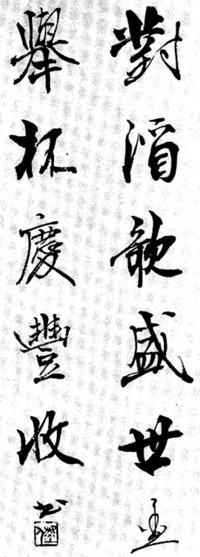 對酒歌盛世
舉杯慶豐收